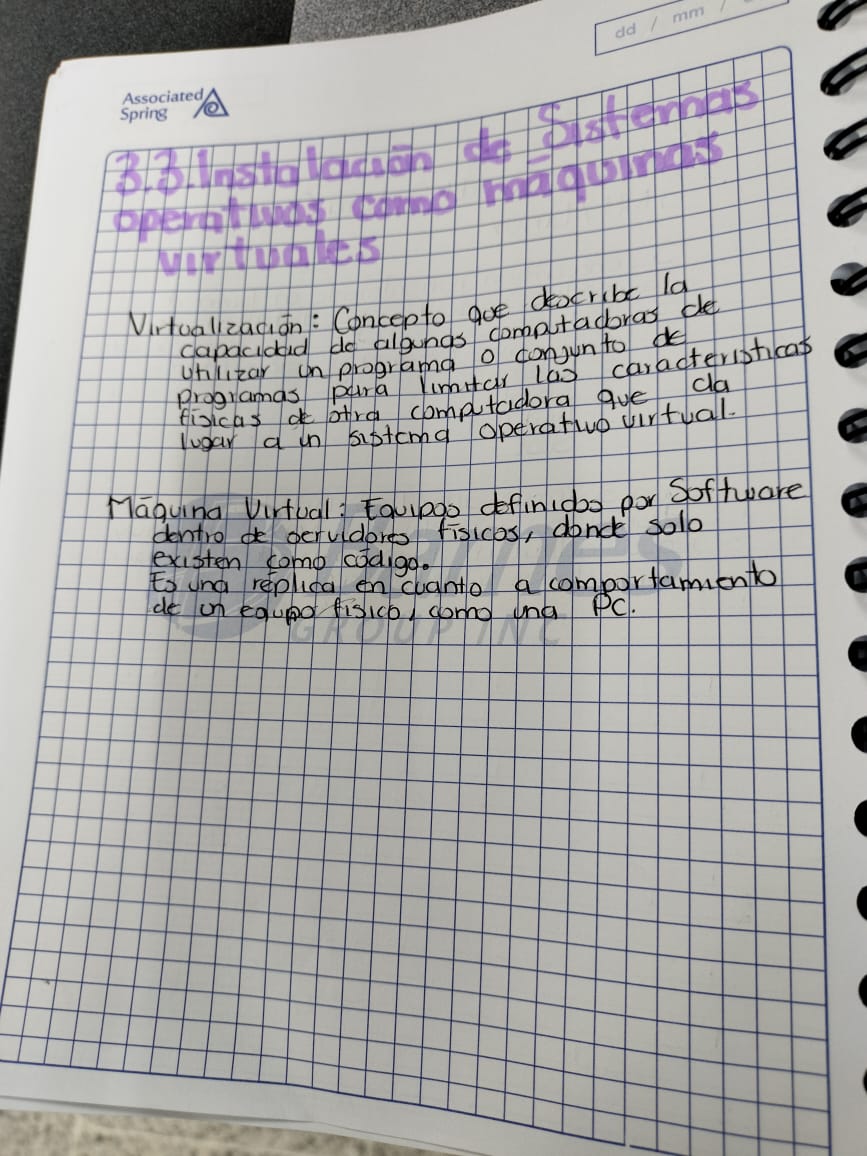 dd / mm /
Associated
Spring
3.3. Instalación de Sistemas
operativos como máquinas
virtuales
Virtualización: Concepto que describe la
capacidad de algunas computadoras de
utilizar un programa o conjunto de
programas para limitar las características
físicas de otra computadora que da
lugar a un sistema operativo virtual.
Máquina Virtual: Equipos definidos por Software
dentro de servidores físicos, donde solo
existen como código.
Es una réplica en cuanto a comportamiento
de un equipo físico, como una PC.
Barnes
GROUP INC